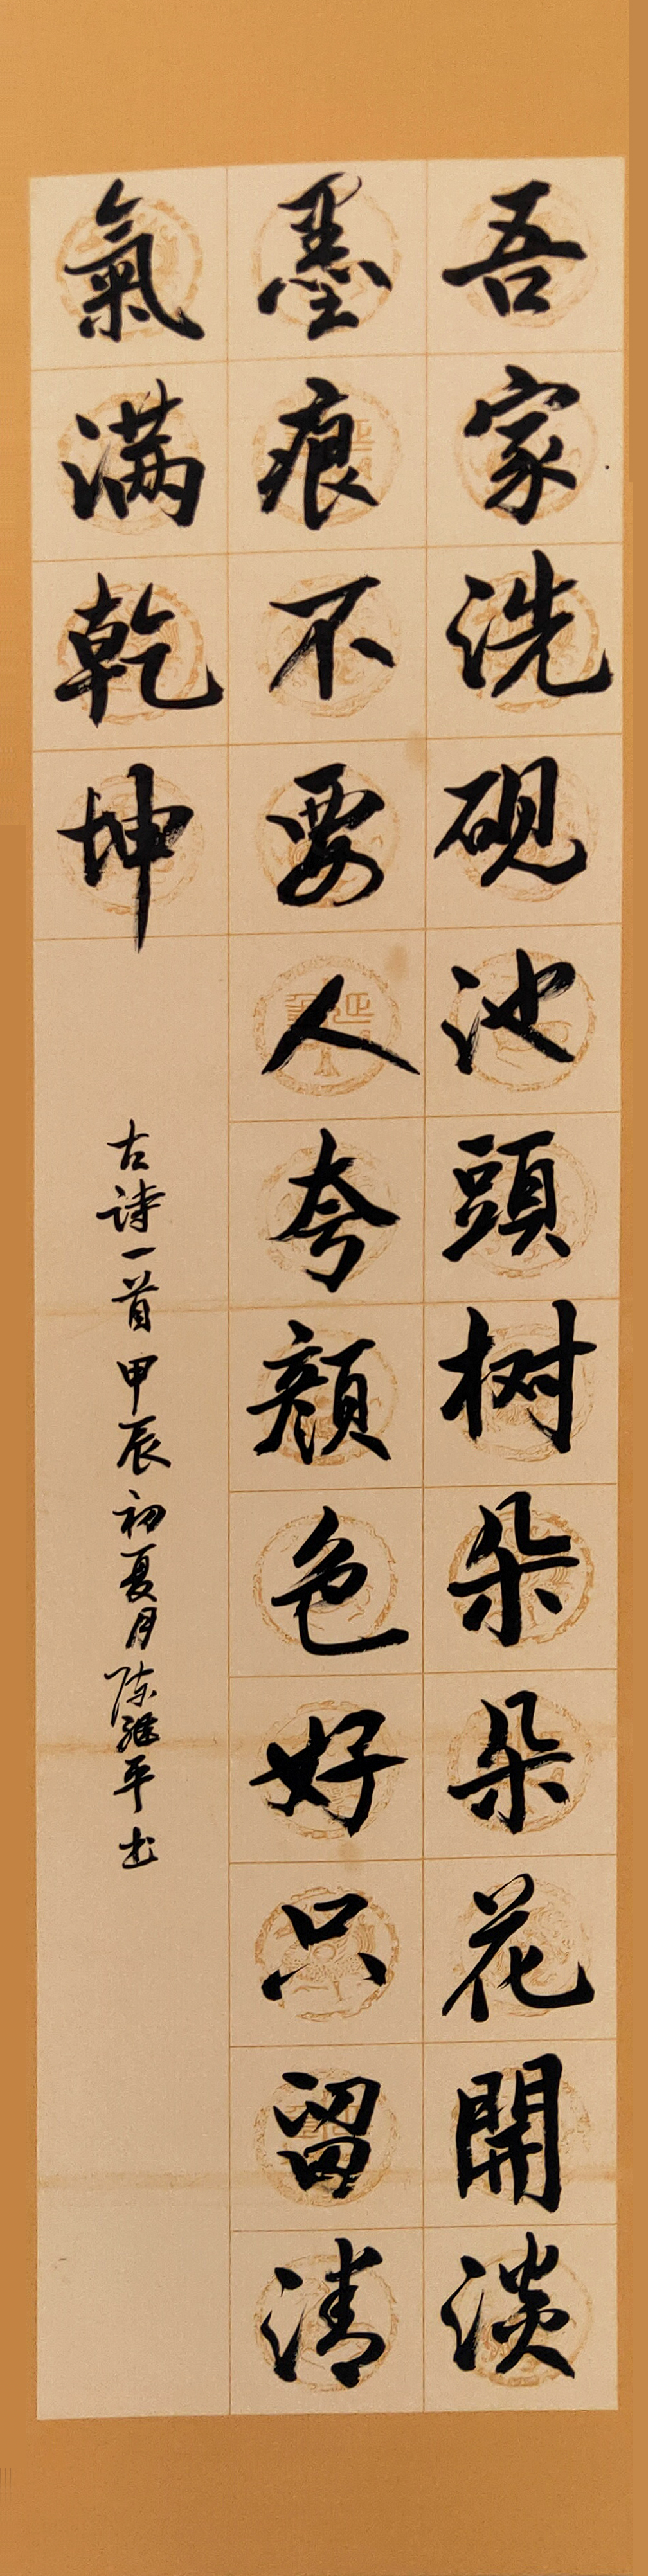 吾家洗砚池頭树朵朵花開淡
墨痕不要人夸顔色好只留清
氣满乾坤
古诗一首甲辰初夏月陈继平书